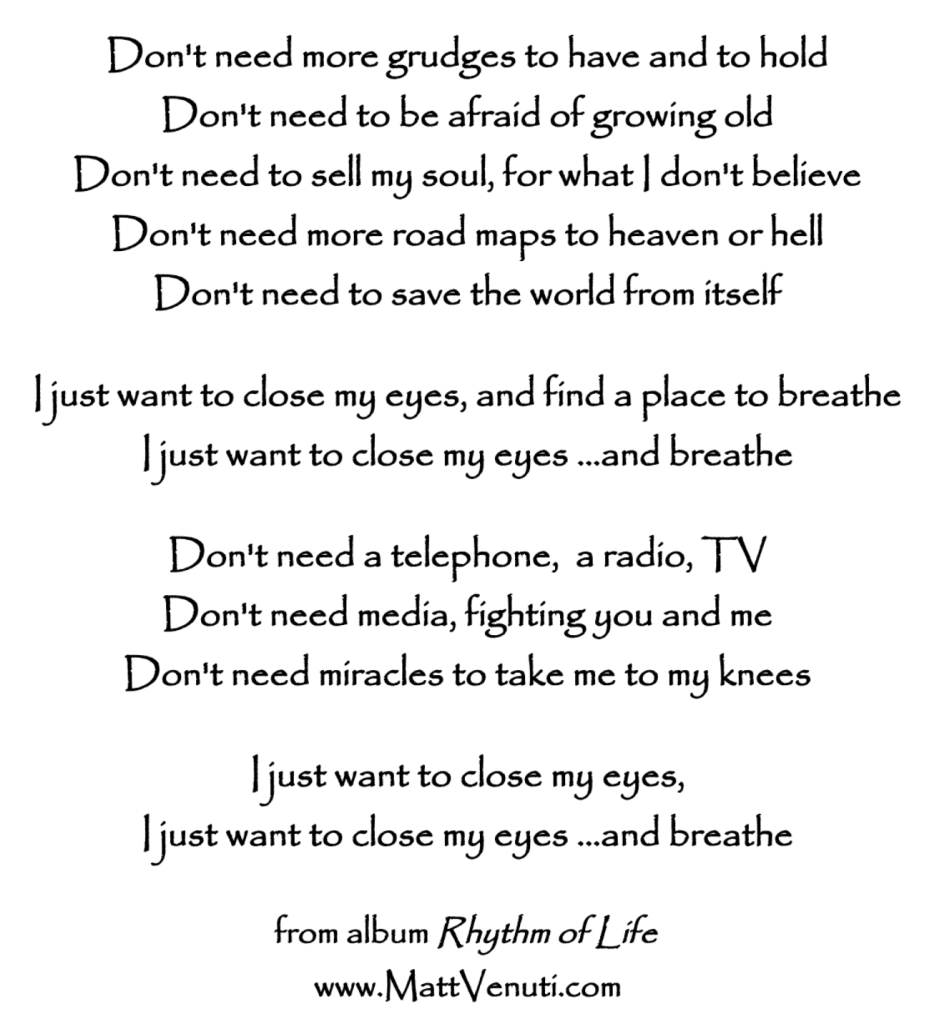 Don't need more grudges to have and to hold
Don't need to be afraid of growing old
Don't need to sell my soul, for what I don't believe
Don't need more road maps to heaven or hell
Don't need to save the world from itself
I just want to close my eyes, and find a place to breathe
I just want to close my eyes ...and breathe
Don't need a telephone,  a radio, TV
Don't need media, fighting you and me
Don't need miracles to take me to my knees
I just want to close my eyes,
I just want to close my eyes ...and breathe
from album Rhythm of Life
www.MattVenuti.com